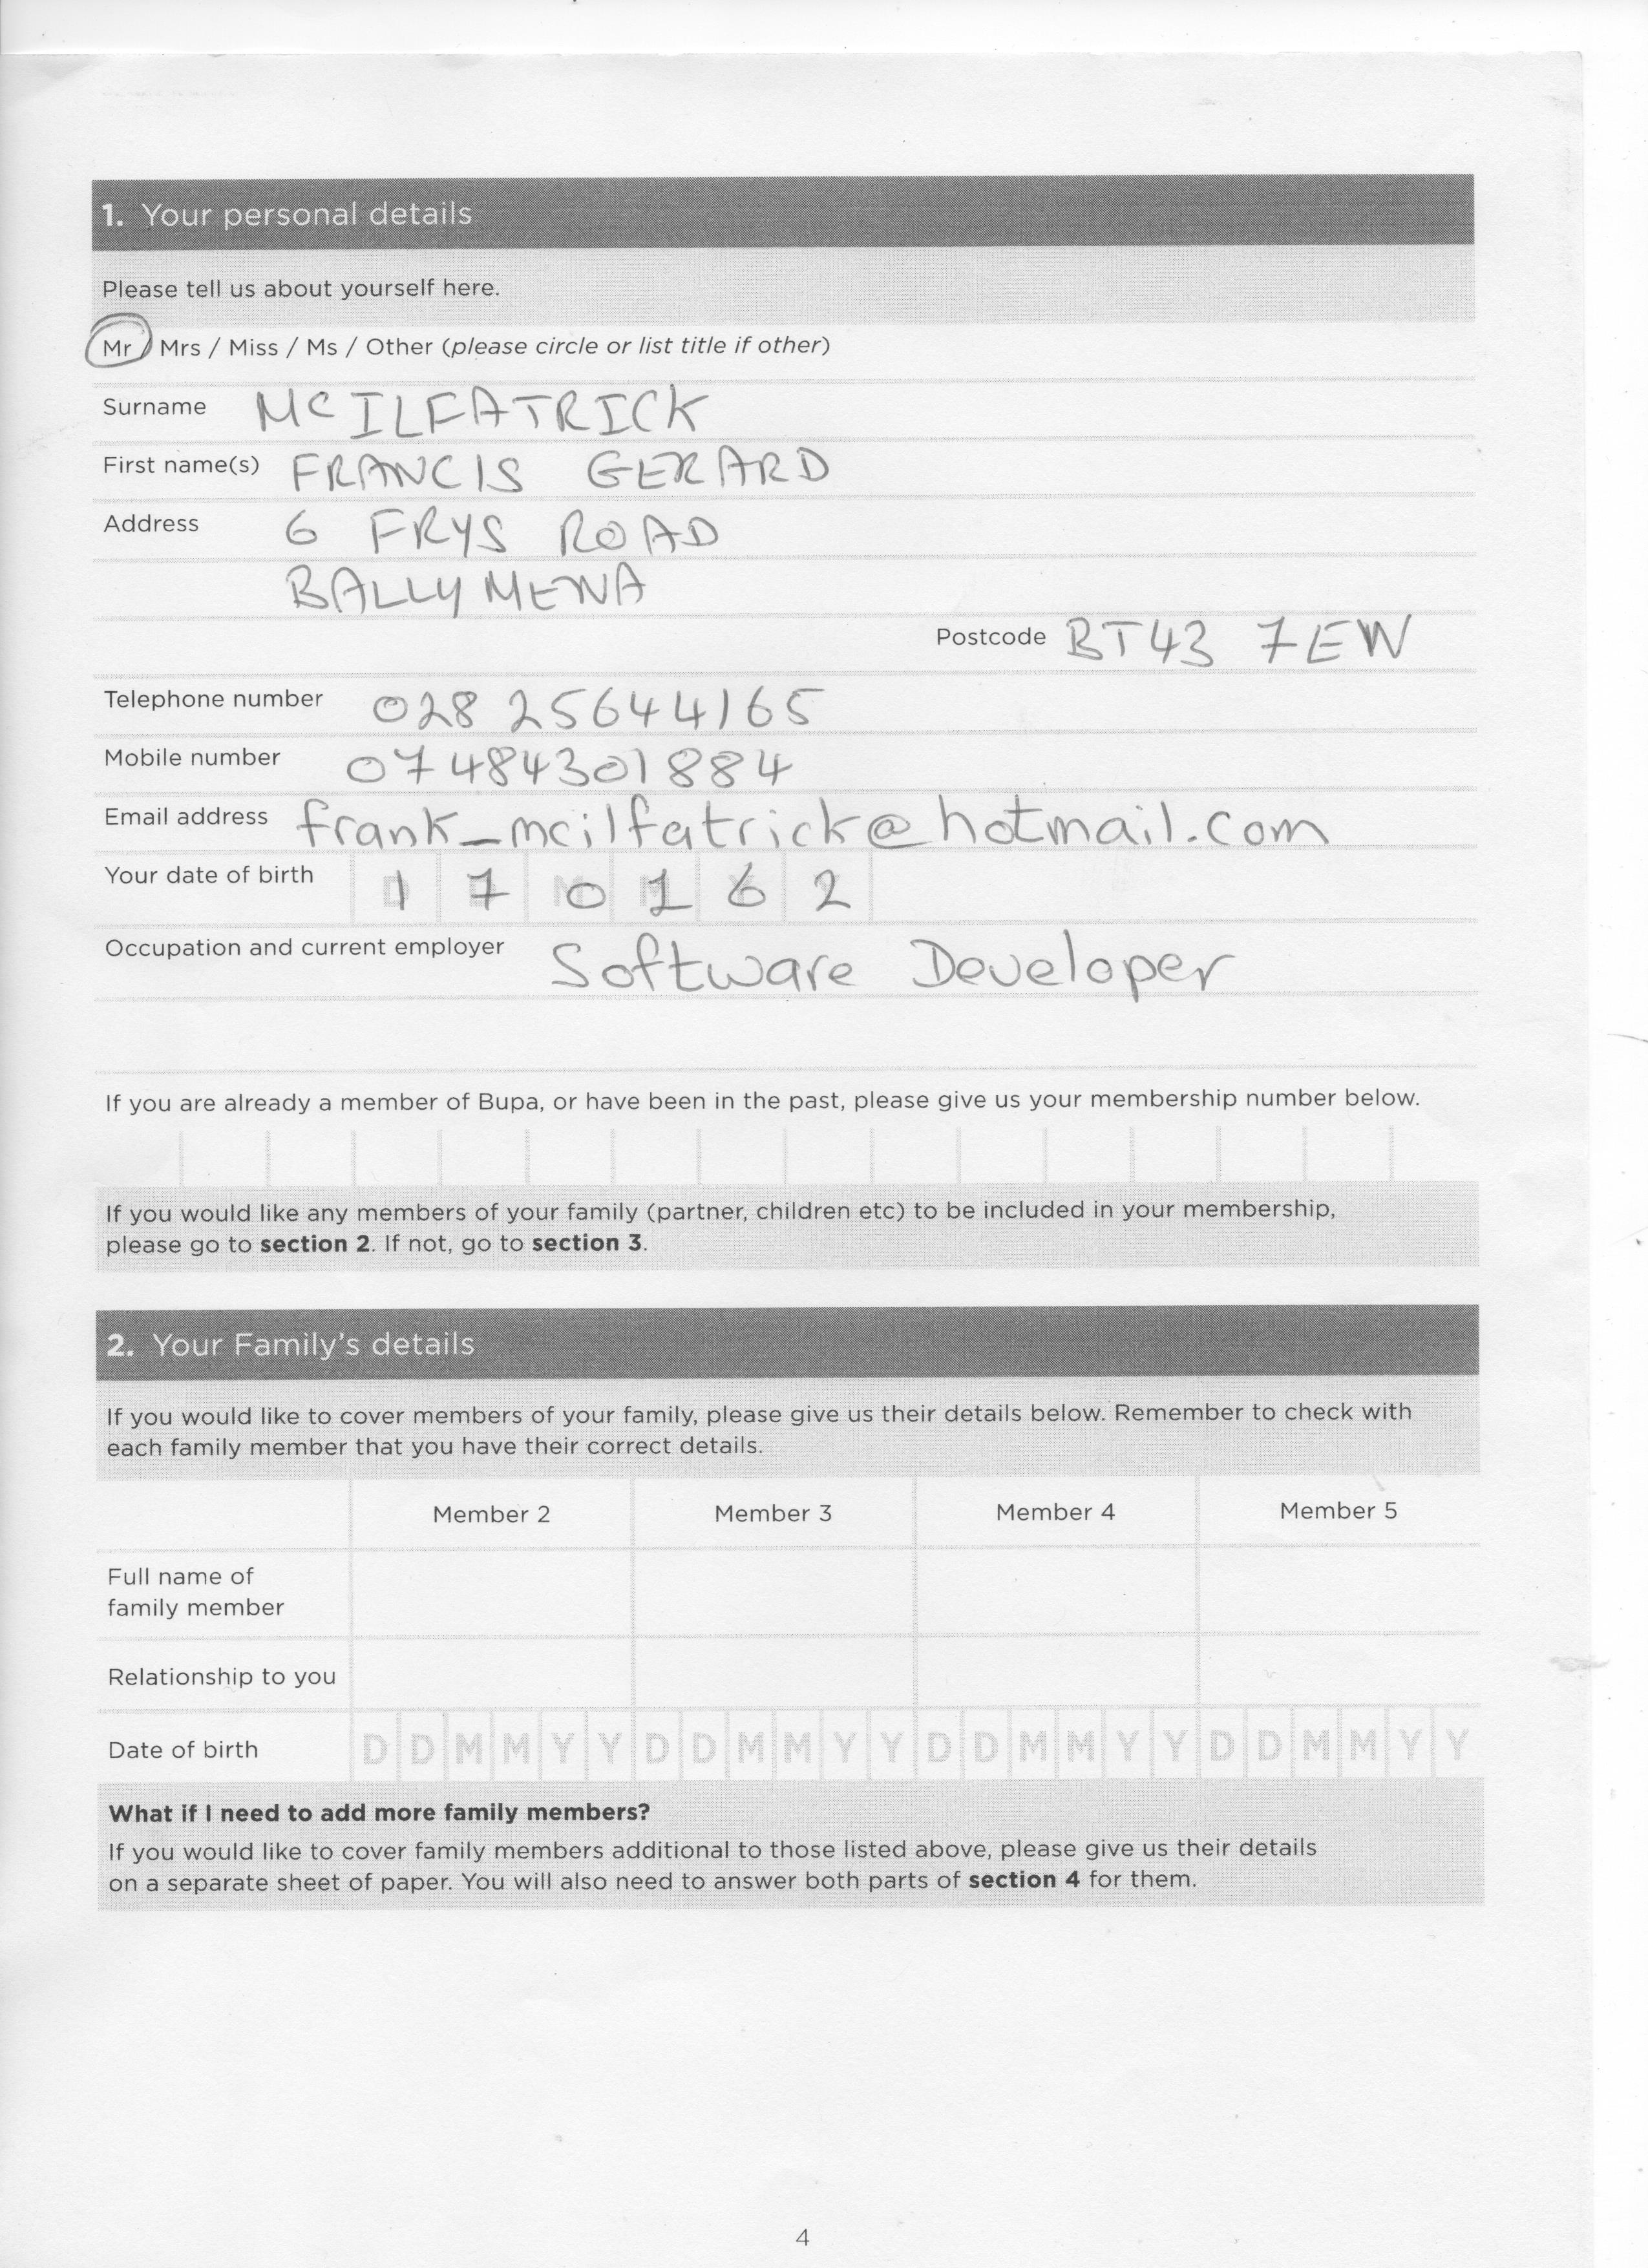 1. Your personal details
Please tell us about yourself here.
Mr / Mrs / Miss / Ms / Other (please circle or list title if other)
Surname MCILFATRICK
First name(s) FRANCIS GERARD
Address 6 FRYS ROAD
BALLYMENA
Postcode BT43 7EW
Telephone number 028 25644165
Mobile number 07484301884
Email address frank_mcilfatrick@hotmail.com
Your date of birth 1 7 0 1 6 2
Occupation and current employer Software Developer
If you are already a member of Bupa, or have been in the past, please give us your membership number below.
If you would like any members of your family (partner, children etc) to be included in your membership,
please go to section 2. If not, go to section 3.
2. Your Family's details
If you would like to cover members of your family, please give us their details below. Remember to check with
each family member that you have their correct details.
Member 2 Member 3 Member 4 Member 5
Full name of
family member
Relationship to you
Date of birth D D M M Y Y D D M M Y Y D D M M Y Y D D M M Y Y
What if I need to add more family members?
If you would like to cover family members additional to those listed above, please give us their details
on a separate sheet of paper. You will also need to answer both parts of section 4 for them.
4